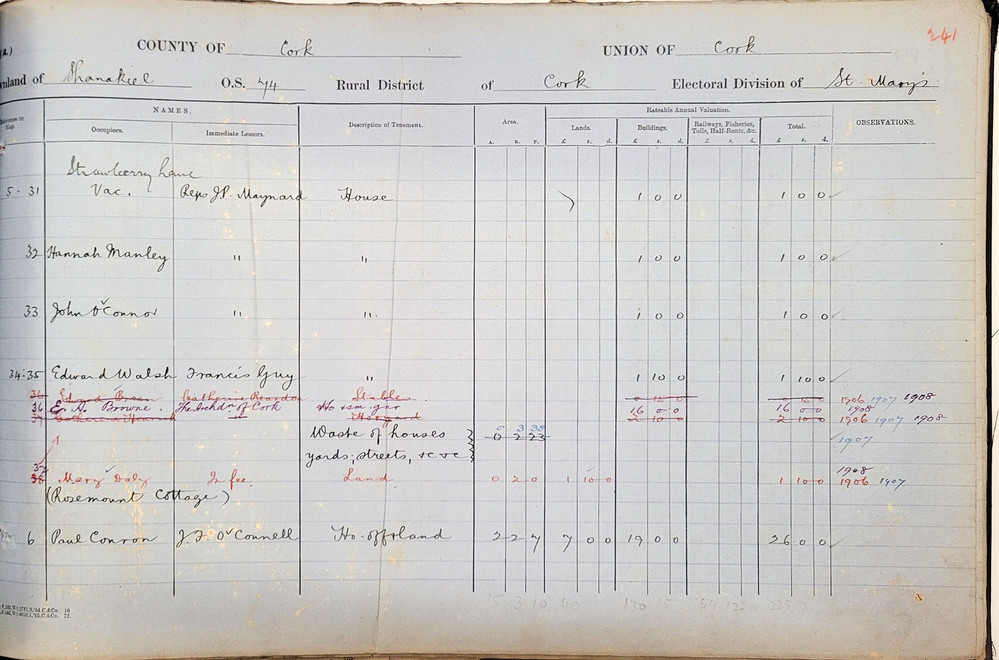 241
(A.)
COUNTY OF Cork UNION OF Cork
nland of Shanakiel O.S. 74 Rural District of Cork Electoral Division of St. Mary's
NAMES. Description of Tenement. Area. Rateable Annual Valuation. OBSERVATIONS.
Occupiers. Immediate Lessors. Lands. Buildings. Railways, Fisheries, Tolls, Half-Rents, &c. Total.
A. R. P. £ s. d. £ s. d. £ s. d. £ s. d.
Strawberry Lane
5 · 31 Vac. Reps J.P. Maynard House 1 0 0 1 0 0
32 Hannah Manley " " 1 0 0 1 0 0
33 John O'Connor " " 1 0 0 1 0 0
34·35 Edward Walsh Francis Guy " 1 10 0 1 10 0
Catherine Reardon Stable 1906 1907 1908
36 E. H. Browne. The Archdn. of Cork Ho & sm. gar 16 0 0 16 0 0 1908
2 10 0 2 10 0 1906 1907 1908
Waste of houses 0 2 23 1907
yards, streets, &c &c
37 1908
38 Mary Daly In fee Land 0 2 0 1 10 0 1 10 0 1906 1907
(Rosemount Cottage)
6 Paul Conron J. F. O'Connell Ho. off & land 2 2 7 7 0 0 19 0 0 26 0 0